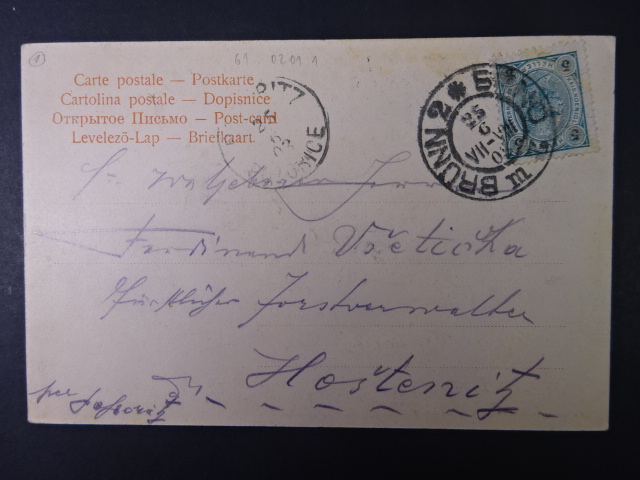 1
61 0201 1
Carte postale — Postkarte
Cartolina postale — Dopisnice
Открытое Письмо — Post-card
Levelező-Lap — Briefkaart
BRÜNN 2 * BRNO
25
6
VII-VIII
ITZ
ICE
5 5
Herrn
Ferdinand Všetička
Fürstlicher Forstverwalter
Hoštenitz
per